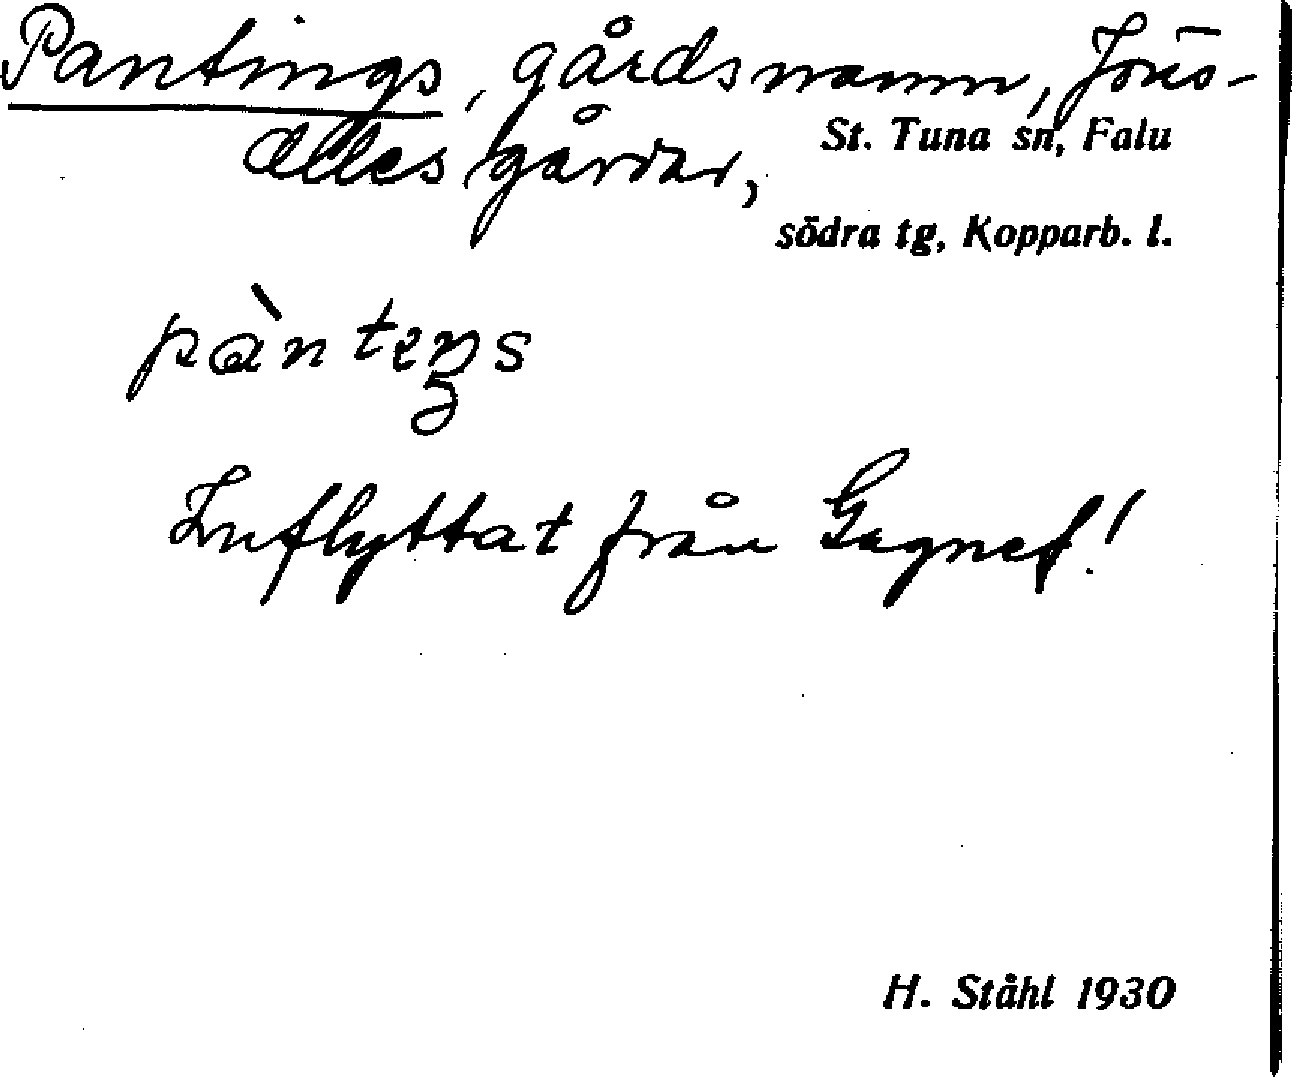 Pantings, gårdsnamn, Jöns-
ollesgårdar, St. Tuna sn, Falu
södra tg, Kopparb. l.
pàntęŋs
Inflyttat från Gagnef!
H. Ståhl 1930